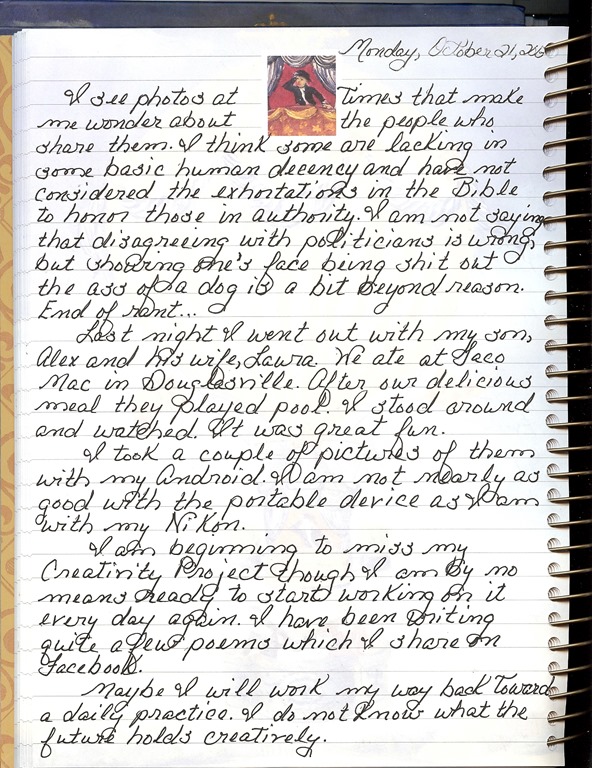 Monday, October 21,
I see photos at Times that make
me wonder about the people who
share them. I think some are lacking in
some basic human decency and have not
considered the exhortations in the Bible
to honor those in authority. I am not saying
that disagreeing with politicians is wrong,
but showing one's face being shit out
the ass of a dog is a bit beyond reason.
End of rant...
Last night I went out with my son,
Alex and his wife, Laura. We ate at Taco
Mac in Douglasville. After our delicious
meal they played pool. I stood around
and watched. It was great fun.
I took a couple of pictures of them
with my Android. I am not nearly as
good with the portable device as I am
with my Nikon.
I am beginning to miss my
Creativity Project though I am by no
means ready to start working on it
every day again. I have been writing
quite a few poems which I share on
Facebook.
Maybe I will work my way back Toward
a daily practice. I do not know what the
future holds creatively.